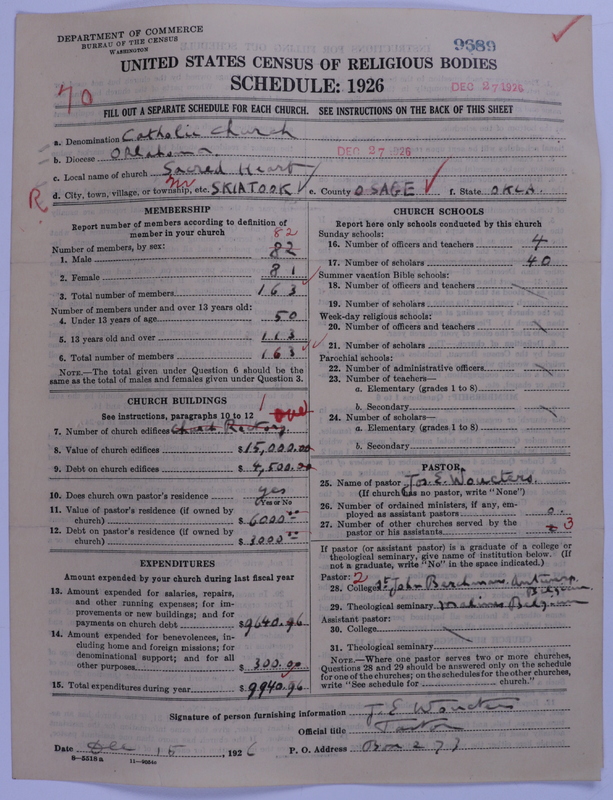 DEPARTMENT OF COMMERCE
BUREAU OF THE CENSUS
WASHINGTON
9689
UNITED STATES CENSUS OF RELIGIOUS BODIES
SCHEDULE: 1926
DEC 27 1926
70
FILL OUT A SEPARATE SCHEDULE FOR EACH CHURCH. SEE INSTRUCTIONS ON THE BACK OF THIS SHEET
a. Denomination Catholic Church
b. Diocese Oklahoma DEC 27 1926
c. Local name of church Sacred Heart
R
d. City, town, village, or township, etc. SKIATOOK e. County OSAGE f. State OKLA.
MEMBERSHIP
Report number of members according to definition of
member in your church
82
Number of members, by sex:
1. Male 82
2. Female 81
3. Total number of members 163
Number of members under and over 13 years old:
4. Under 13 years of age 50
5. 13 years old and over 113
6. Total number of members 163
NOTE.—The total given under Question 6 should be
same as the total of males and females given under Question 3.
CHURCH BUILDINGS
See instructions, paragraphs 10 to 12
1 one
7. Number of church edifices Church Rectory
8. Value of church edifices $15,000.00
9. Debt on church edifices $4,500.00
10. Does church own pastor's residence yes
(Yes or No)
11. Value of pastor's residence (if owned by
church) $6000.00
12. Debt on pastor's residence (if owned by
church) $3000.00
EXPENDITURES
Amount expended by your church during last fiscal year
13. Amount expended for salaries, repairs,
and other running expenses; for im-
provements or new buildings; and for
payments on church debt $9640.96
14. Amount expended for benevolences, in-
cluding home and foreign missions; for
denominational support; and for all
other purposes $300.00
15. Total expenditures during year $9940.96
CHURCH SCHOOLS
Report here only schools conducted by this church
Sunday schools:
16. Number of officers and teachers 4
17. Number of scholars 40
Summer vacation Bible schools:
18. Number of officers and teachers
19. Number of scholars
Week-day religious schools:
20. Number of officers and teachers
21. Number of scholars
Parochial schools:
22. Number of administrative officers
23. Number of teachers—
a. Elementary (grades 1 to 8)
b. Secondary
24. Number of scholars—
a. Elementary (grades 1 to 8)
b. Secondary
PASTOR
25. Name of pastor Jos. E. Wouters.
(If church has no pastor, write "None")
26. Number of ordained ministers, if any, em-
ployed as assistant pastors 0.
27. Number of other churches served by the
pastor or his assistants 3
If pastor (or assistant pastor) is a graduate of a college or
theological seminary, give name of institution below. (If
not a graduate, write "No" in the space indicated.)
Pastor: 2
28. College St John Berchmans. Antwerp.
Belgium
29. Theological seminary Malines Belgium
Assistant pastor:
30. College
31. Theological seminary
NOTE.—Where one pastor serves two or more churches,
Questions 28 and 29 should be answered only on the schedule
for one of the churches; on the schedules for the other churches,
write "See schedule for church."
Signature of person furnishing information J. E Wouters
Official title Pastor
Date Dec 15, 1926 P. O. Address Box 273
8—5518a 11—9064a